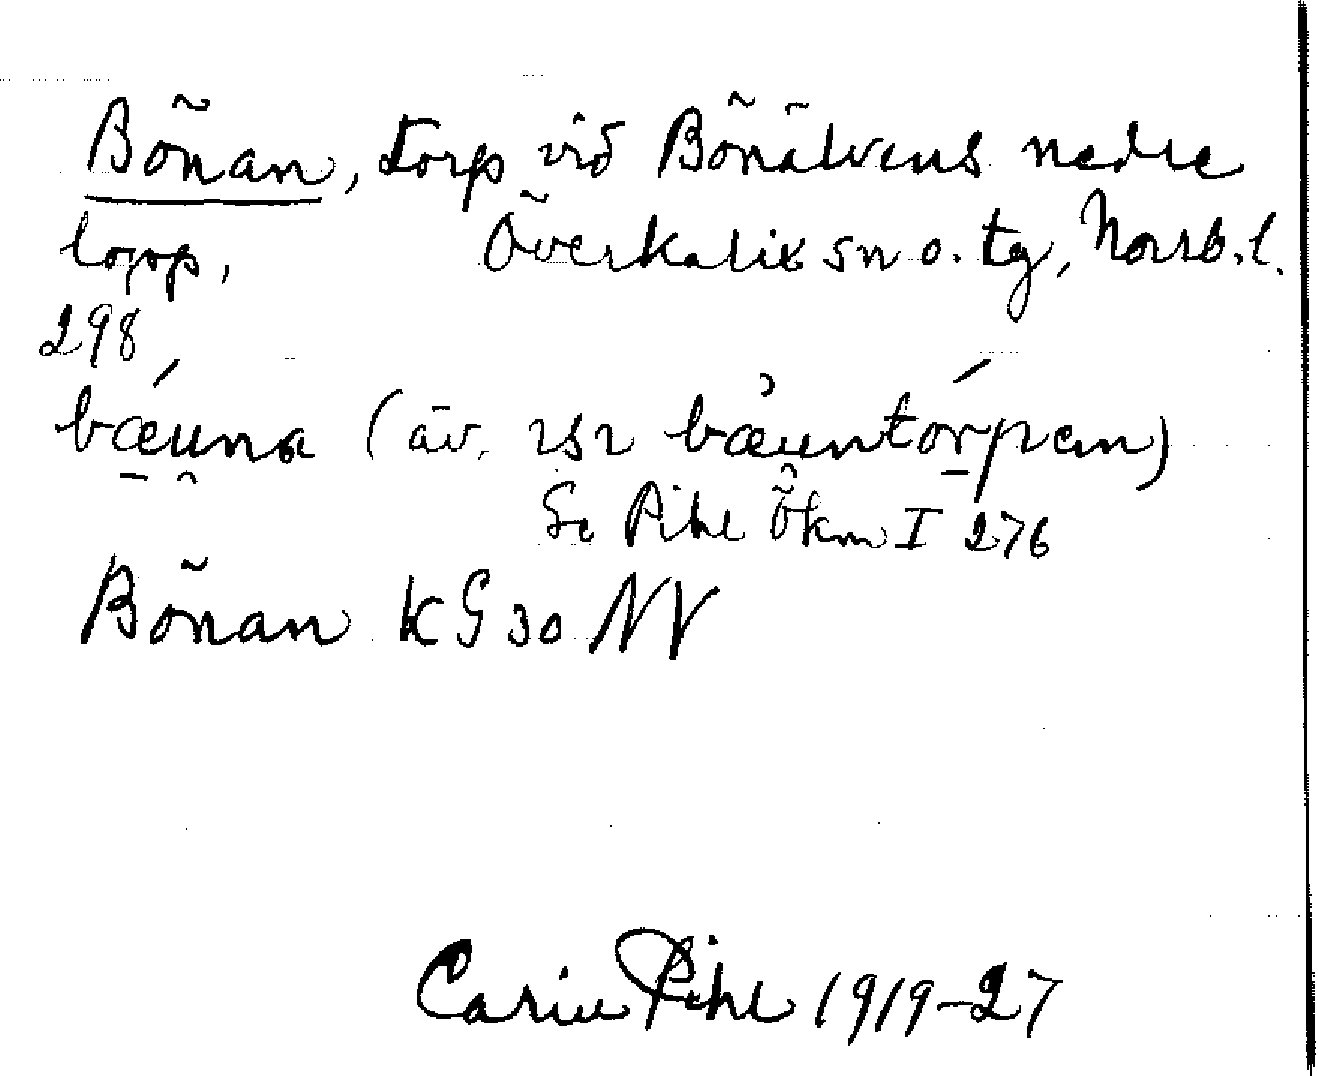 Bönan, torp vid Bönälvens nedre
lopp, Överkalix sn o. tg, Norrb. l.
298
bæuna (äv. bæuntórpen)
Se Pihl Ökm I 276
Bönan KG 30 NV
Carin Pihl 1919-27